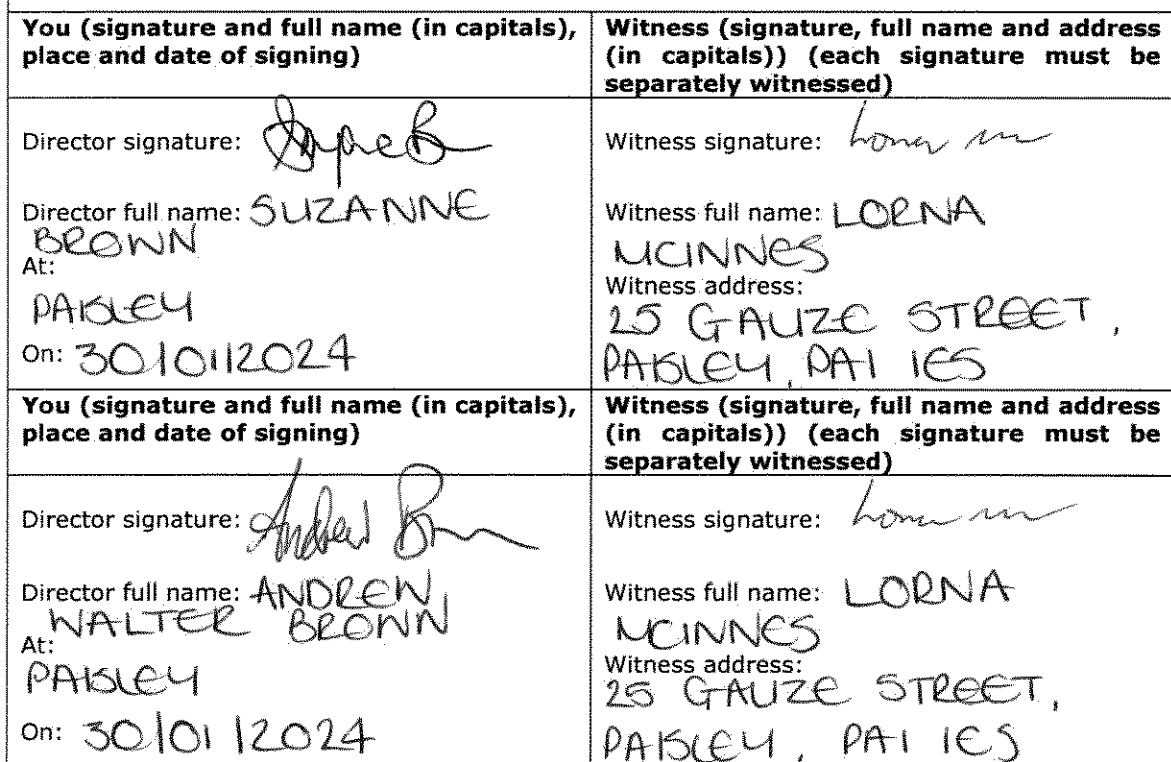 You (signature and full name (in capitals), place and date of signing)
Witness (signature, full name and address (in capitals)) (each signature must be separately witnessed)
Director signature:
Director full name: SUZANNE
BROWN
At:
PAISLEY
On: 30/01/2024
Witness signature:
Witness full name: LORNA
MCINNES
Witness address:
25 GAUZE STREET,
PAISLEY, PA1 1ES
You (signature and full name (in capitals),
place and date of signing)
Witness (signature, full name and address
(in capitals)) (each signature must be
separately witnessed)
Director signature: Andrew B
Director full name: ANDREW
WALTER BROWN
At:
PAISLEY
On: 30/01/2024
Witness signature:
Witness full name: LORNA
MCINNES
Witness address:
25 GAUZE STREET,
PAISLEY, PA1 1ES